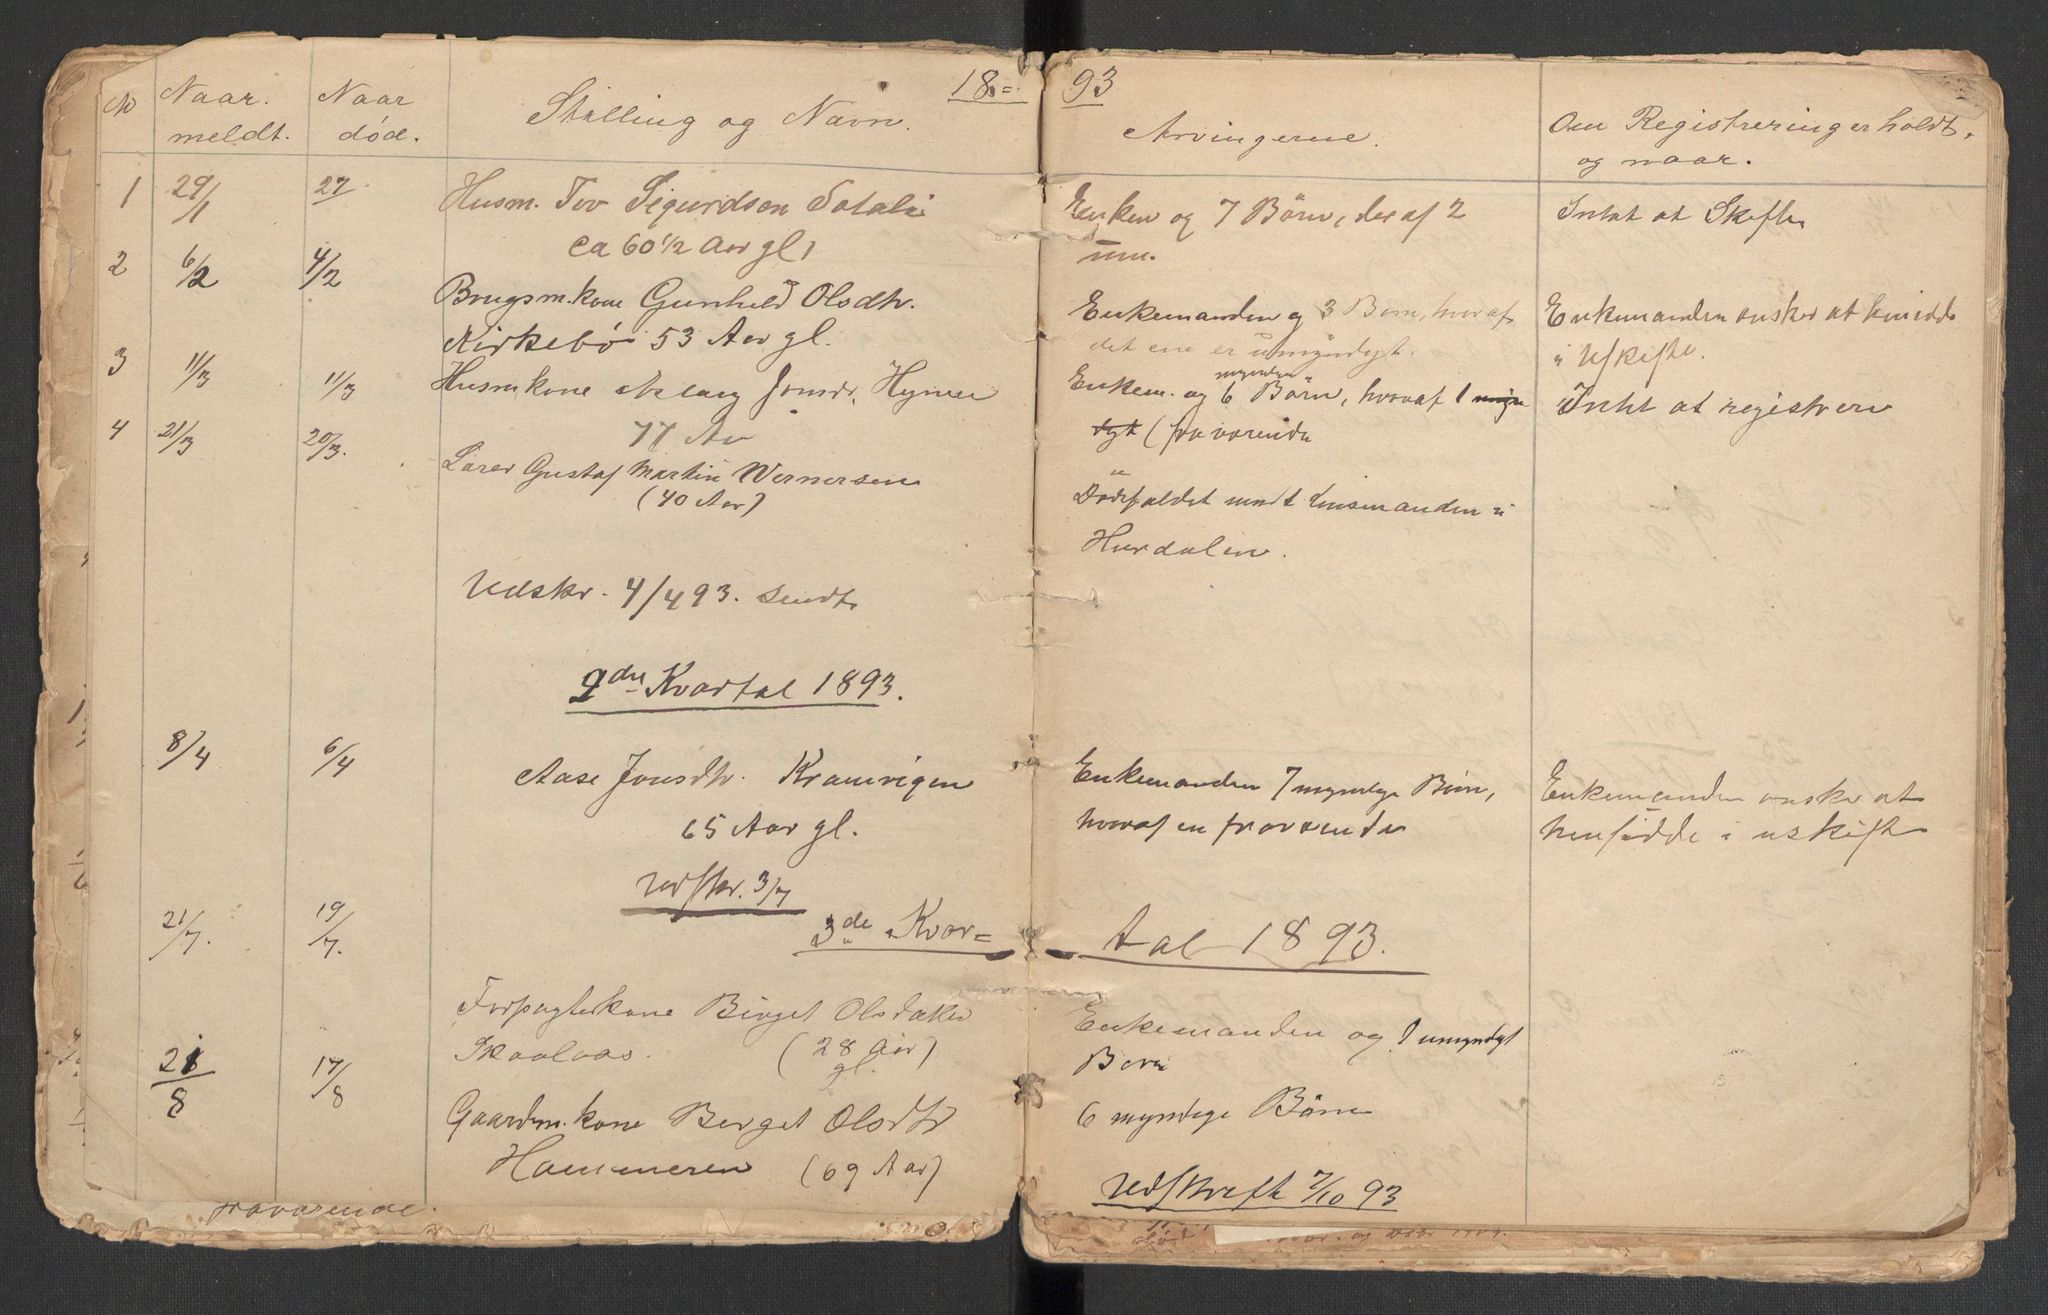 18=93
No
Naar meldt.
Naar død.
Stilling og Navn.
Arvingerne.
Om Registrering er holdt, og naar.
1 29/1 27 Husm. Tov Sigurdsen
Enken og 7 Børn, deraf 2
Intet at Skifte
ca 60 1/2 Aar gl,
um.
2 6/2 4/2 Brugsm.kone Gunhild Olsdtr.
Enkemanden og 3 Børn, hvoraf
Enkemanden ønsker at hensidde
Kirkebø 53 Aar gl.
det ene er umyndigt.
i Uskifte.
3 11/3 11/3 Husm.kone Aslaug Jonsdr.
Enkem. og 6 myndige Børn, hvoraf 1
Intet at registrere
77 Aar
(fraværende
4 21/3 20/3. Lærer Gustaf Martin Wernersen
Dødsfaldet meldt Lensmanden i
(40 Aar)
Hurdalen.
Udskr. 4/4 93. sendt
2det Kvartal 1893.
8/4 6/4 Aase Jonsdtr. Kramvigen
Enkemanden 7 myndige Børn,
Enkemanden ønsker at
65 Aar gl.
hvoraf en fraværende
hensidde i uskifte
Udskr. 3/7
3de Kvar=tal 1893.
21/7. 19/7. Forpagterkone Birget Olsdatter
Enkemanden og 1 umyndigt
Skaalaas. (28 Aar gl.)
Barn
21/8 17/8 Gaardm.kone Berget Olsdtr
6 myndige Børn
Hammeren (69 Aar)
Udskrift 7/10 93
fraværende.